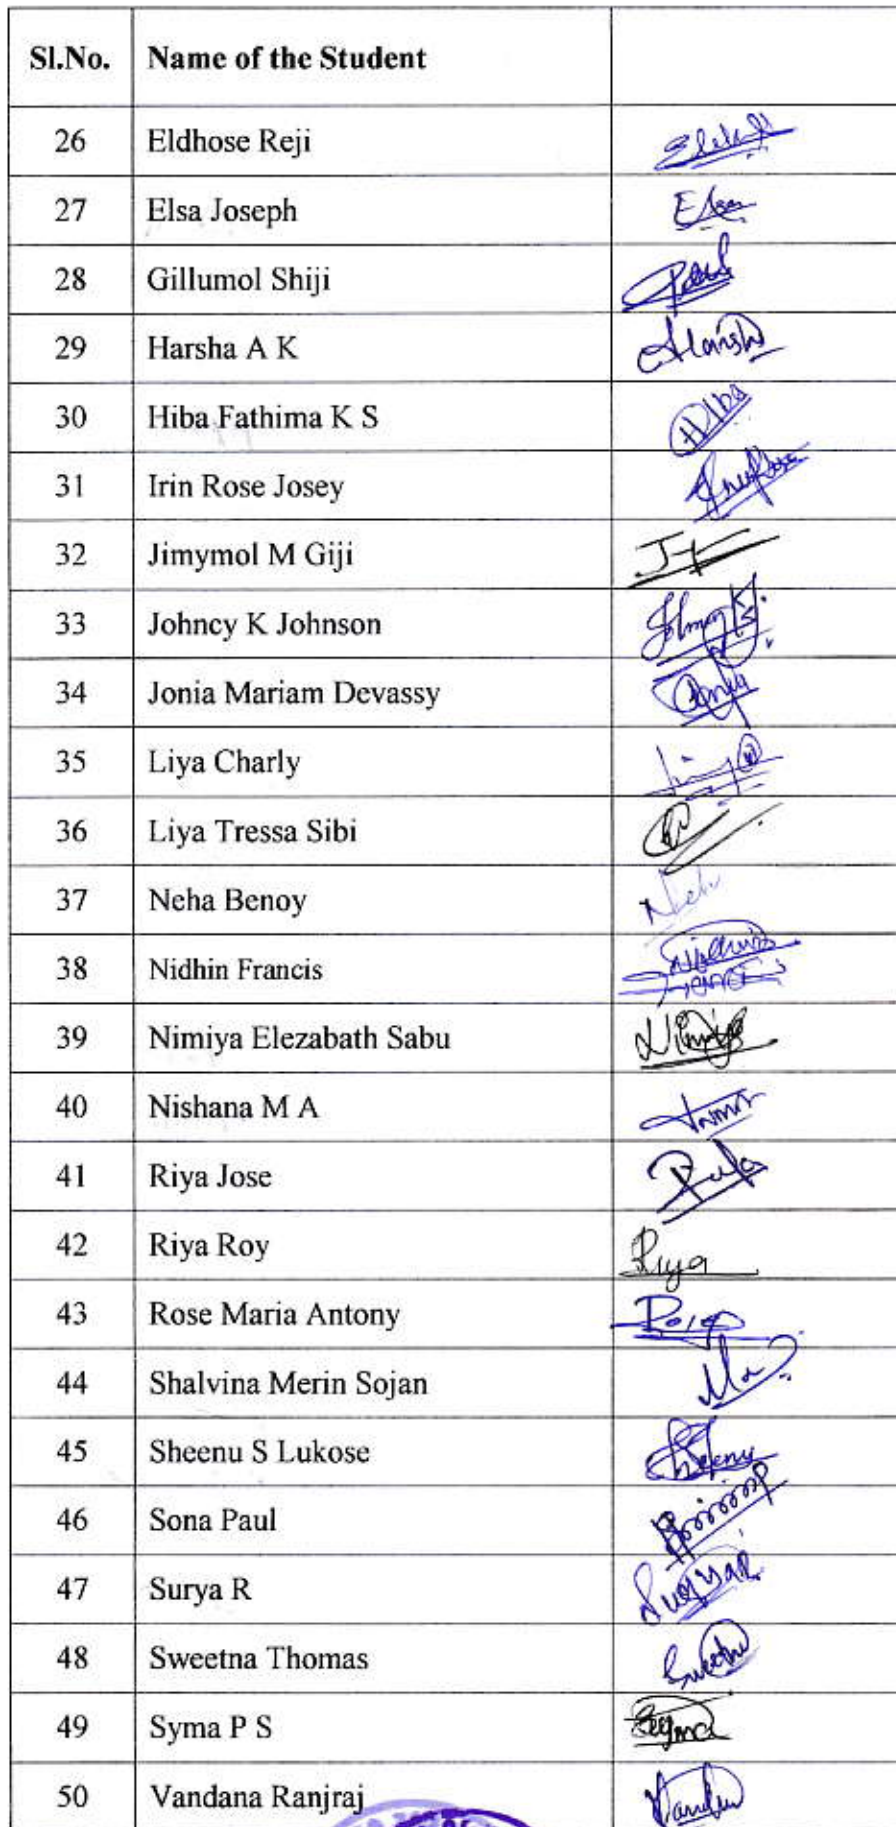 Sl.No. Name of the Student
26 Eldhose Reji
27 Elsa Joseph Elsa
28 Gillumol Shiji
29 Harsha A K Harsha
30 Hiba Fathima K S Hiba
31 Irin Rose Josey
32 Jimymol M Giji
33 Johncy K Johnson
34 Jonia Mariam Devassy
35 Liya Charly
36 Liya Tressa Sibi
37 Neha Benoy
38 Nidhin Francis
39 Nimiya Elezabath Sabu Nimiya
40 Nishana M A
41 Riya Jose
42 Riya Roy Riya
43 Rose Maria Antony
44 Shalvina Merin Sojan
45 Sheenu S Lukose Sheenu
46 Sona Paul
47 Surya R
48 Sweetna Thomas
49 Syma P S Syma
50 Vandana Ranjraj